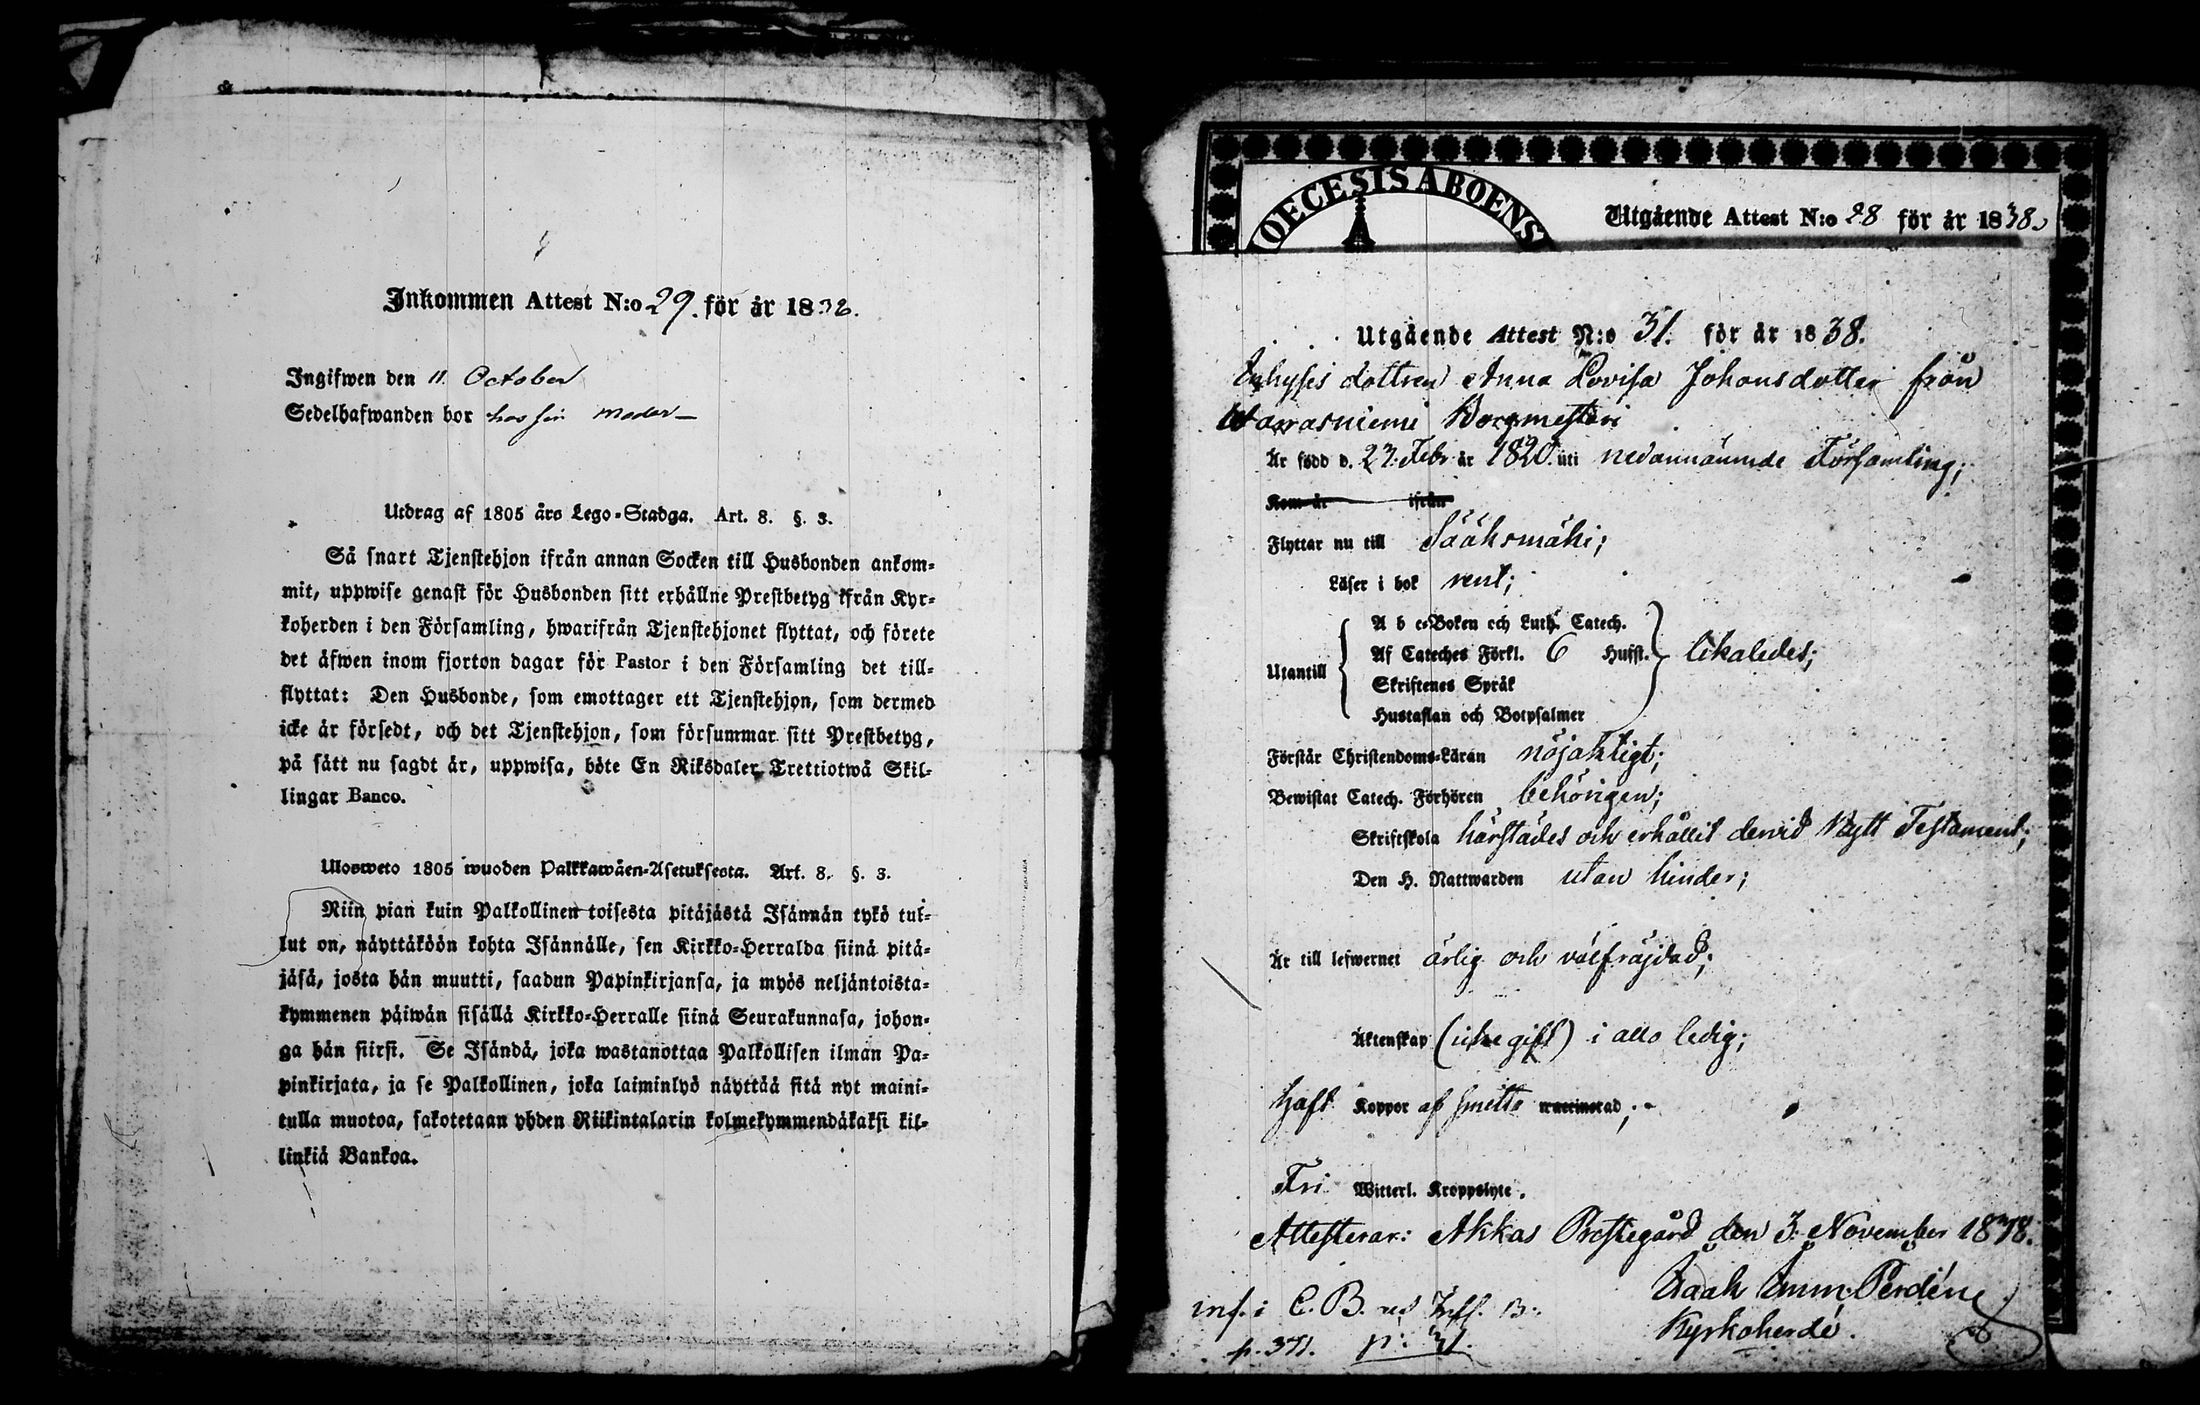 Inkommen Attest N:o 29. för år 1838.
Ingifwen den 11 October
Sedelhafwanden bor hos sin moder
Utdrag af 1805 års Lego-Stadga. Art. 8. §. 3.
Så snart Tjenstehjon ifrån annan Socken till Husbonden ankom-
mit, uppwise genast för Husbonden sitt erhållne Prestbetyg ifrån Kyr-
koherden i den Församling, hwarifrån Tjenstehjonet flyttat, och förete
det äfwen inom fjorton dagar för Pastor i den Församling det till-
flyttat: Den Husbonde, som emottager ett Tjenstehjon, som dermed
icke är försedt, och det Tjenstehjon, som försummar sitt Prestbetyg,
på sätt nu sagdt är, uppwisa, böte En Riksdaler Trettiotwå Skil-
lingar Banco.
Ulosweto 1805 wuoden Palkkawäen-Asetuksesta. Art. 8. §. 3.
Niin pian kuin Palkollinen toisesta pitäjästä Isännän tykö tul-
lut on, näyttäköön kohta Isännälle, sen Kirkko-Herralda siinä pitä-
jäsä, josta hän muutti, saadun Papinkirjansa, ja myös neljäntoista-
kymmenen päiwän sisällä Kirkko-Herralle siinä Seurakunnasa, johon-
ga hän siirsi. Se Isändä, joka wastanottaa Palkollisen ilman Pa-
pinkirjata, ja se Palkollinen, joka laiminlyö näyttää sitä nyt maini-
tulla muotoa, sakotetaan yhden Riikintalarin kolmekymmendäkaksi kil-
linkiä Bankoa.
OECESIS ABOENS
Utgående Attest N:o 28 för år 1838.
Utgående Attest N:o 31. för år 1838.
Inhyses dottren Anna Lovisa Johansdotter från
Warrasniemi Borgmestari
Är född d. 27. Febr. år 1820. uti nedannämnde Församling;
Kom år ifrån
Flyttar nu till Sääksmäki;
Läser i bok rent;
A b c-Boken och Luth. Catech.
Utantill Af Cateches Förkl. 6 Hufst. likaledes;
Skriftenes Språk
Hustaflan och Botpsalmer
Förstår Christendoms-Läran nöjaktigt;
Bewistat Catech. Förhören behörigen;
Skriftskola härstädes och erhållit dervid Nytt Testament;
Den H. Nattwarden utan hinder;
Är till lefwernet ärlig och välfräjdad;
Äktenskap (icke gift) i allo ledig;
Haft Koppor af smitto waccinerad;
Fri Witterl. Kroppslyte.
Attesterar: Akkas Prestegård den 3. November 1838.
Isaak Imm. Perdén
Kyrkoherde.
inf. i C. B. ut Infl. B.
p. 371. p. 31.